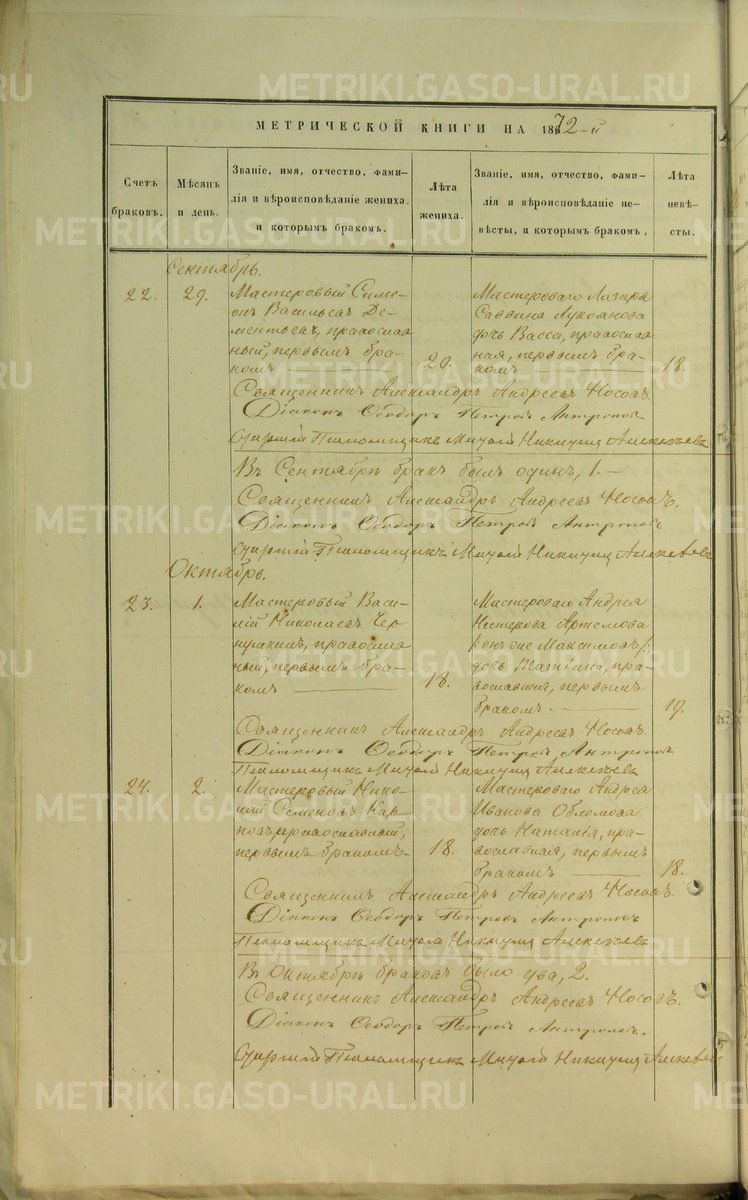 МЕТРИЧЕСКОЙ КНИГИ НА 1872-й
Счетъ браковъ.
Мѣсяцъ и день.
Званіе, имя, отчество, фами-
лія и вѣроисповѣданіе жениха.
и которымъ бракомъ.
Лѣта жениха.
Званіе, имя, отчество, фами-
лія и вѣроисповѣданіе не-
вѣсты, и которымъ бракомъ,
Лѣта невѣ-
сты.
Сентябрь.
22.
29.
Мастеровый Симе-
онъ Васильевъ Де-
ментьевъ, православ
ный, первымъ бра-
комъ
20.
Мастероваго Лазаря
Саввина Лукоянова
дочь Васса, православ
ная, первымъ бра-
комъ
18.
Священникъ Александръ Андреевъ Носовъ.
Діаконъ Ѳеодоръ Петровъ Антроповъ
Старшій Псаломщикъ Алексѣевъ
Въ Сентябрѣ бракъ былъ одинъ, 1. —
Священникъ Александръ Андреевъ Носовъ.
Діаконъ Ѳеодоръ Петровъ Антроповъ
Старшій Псаломщикъ Алексѣевъ
Октябрь.
23.
1.
Мастеровый Васи-
лій Николаевъ
православ
ный, первымъ бра-
комъ
18.
Мастероваго Андрея
Нестерова Артемова
/онъ же Максимовъ/
дочь Татіана, пра-
вославная, первымъ
бракомъ
19.
Священникъ Александръ Андреевъ Носовъ.
Діаконъ Ѳеодоръ Петровъ Антроповъ
Псаломщикъ Алексѣевъ
24.
2.
Мастеровый Нико-
лай Семеновъ Кар
повъ, православный,
первымъ бракомъ.
18.
Мастероваго Андрея
Иванова Обломова
дочь Наталія, пра-
вославная, первымъ
бракомъ
18.
Священникъ Александръ Андреевъ Носовъ.
Діаконъ Ѳеодоръ Петровъ Антроповъ
Псаломщикъ Алексѣевъ
Въ Октябрѣ браковъ было два, 2.
Священникъ Александръ Андреевъ Носовъ.
Діаконъ Ѳеодоръ Петровъ Антроповъ.
Старшій Псаломщикъ Алексѣевъ
METRIKI.GASO-URAL.RU